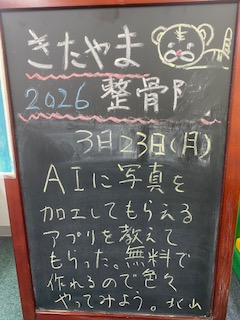 きたやま
2026 整骨院
3月23日(月)
AIに写真を
加工してもらえる
アプリを教えて
もらった。無料で
作れるので、色々
やってみよう。北山